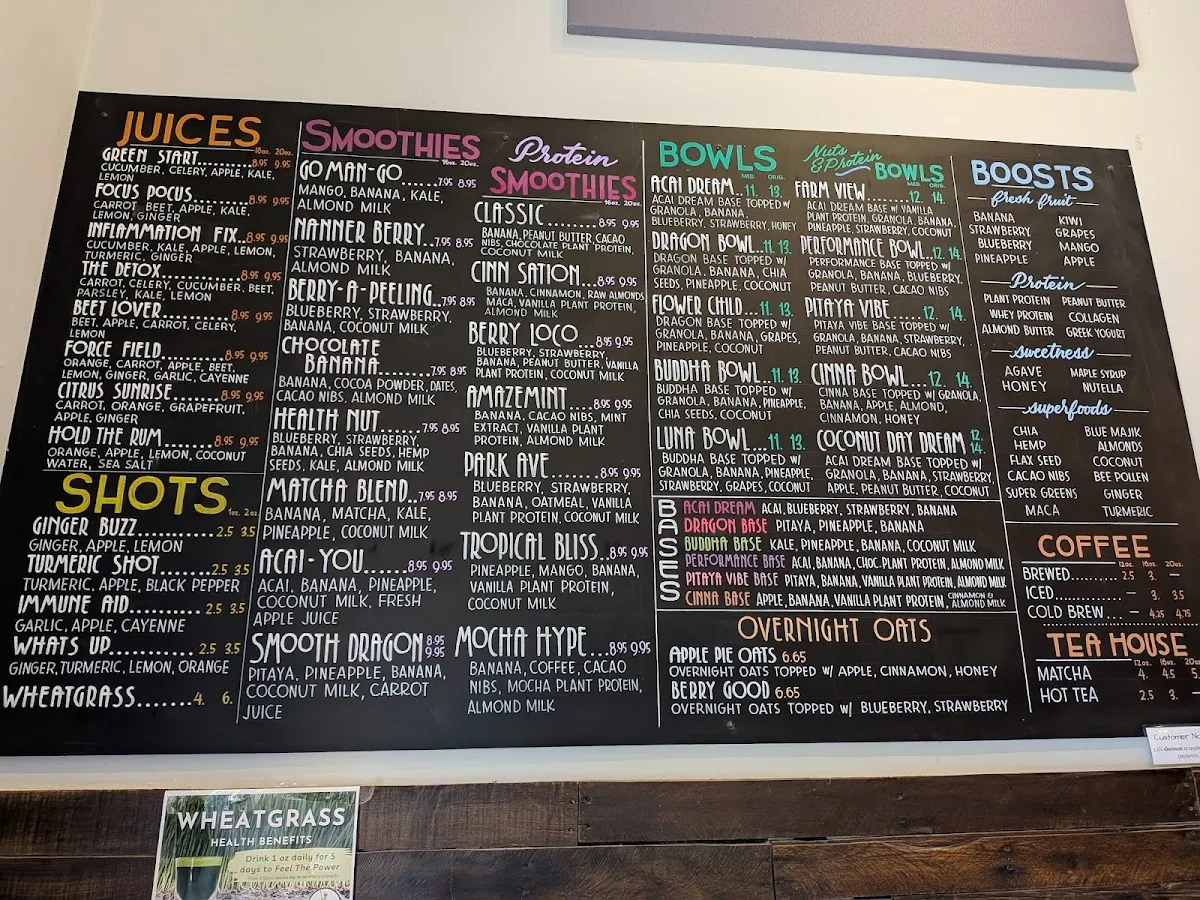 JUICES
16oz. 20oz.
GREEN START.......8.95 9.95
CUCUMBER, CELERY, APPLE, KALE,
LEMON
FOCUS POCUS.......8.95 9.95
CARROT, BEET, APPLE, KALE,
LEMON, GINGER
INFLAMMATION FIX..8.95 9.95
CUCUMBER, KALE, APPLE, LEMON,
TURMERIC, GINGER
THE DETOX.........8.95 9.95
CARROT, CELERY, CUCUMBER, BEET,
PARSLEY, KALE, LEMON
BEET LOVER........8.95 9.95
BEET, APPLE, CARROT, CELERY,
LEMON
FORCE FIELD.......8.95 9.95
ORANGE, CARROT, APPLE, BEET,
LEMON, GINGER, GARLIC, CAYENNE
CITRUS SUNRISE....8.95 9.95
CARROT, ORANGE, GRAPEFRUIT,
APPLE, GINGER
HOLD THE RUM......8.95 9.95
ORANGE, APPLE, LEMON, COCONUT
WATER, SEA SALT
SHOTS
1oz. 2oz.
GINGER BUZZ.......2.5 3.5
GINGER, APPLE, LEMON
TURMERIC SHOT.....2.5 3.5
TURMERIC, APPLE, BLACK PEPPER
IMMUNE AID........2.5 3.5
GARLIC, APPLE, CAYENNE
WHATS UP..........2.5 3.5
GINGER, TURMERIC, LEMON, ORANGE
WHEATGRASS........4. 6.
SMOOTHIES
16oz. 20oz.
GO MAN-GO.....7.95 8.95
MANGO, BANANA, KALE,
ALMOND MILK
NANNER BERRY..7.95 8.95
STRAWBERRY, BANANA,
ALMOND MILK
BERRY-A-PEELING..7.95 8.95
BLUEBERRY, STRAWBERRY,
BANANA, COCONUT MILK
CHOCOLATE
BANANA........7.95 8.95
BANANA, COCOA POWDER, DATES,
CACAO NIBS, ALMOND MILK
HEALTH NUT....7.95 8.95
BLUEBERRY, STRAWBERRY,
BANANA, CHIA SEEDS, HEMP
SEEDS, KALE, ALMOND MILK
MATCHA BLEND..7.95 8.95
BANANA, MATCHA, KALE,
PINEAPPLE, COCONUT MILK
ACAI-YOU......8.95 9.95
ACAI, BANANA, PINEAPPLE,
COCONUT MILK, FRESH
APPLE JUICE
SMOOTH DRAGON 8.95 9.95
PITAYA, PINEAPPLE, BANANA,
COCONUT MILK, CARROT
JUICE
Protein
SMOOTHIES
16oz. 20oz.
CLASSIC.......8.95 9.95
BANANA, PEANUT BUTTER, CACAO
NIBS, CHOCOLATE PLANT PROTEIN,
COCONUT MILK
CINN SATION...8.95 9.95
BANANA, CINNAMON, RAW ALMONDS
MACA, VANILLA PLANT PROTEIN,
ALMOND MILK
BERRY LOCO..8.95 9.95
BLUEBERRY, STRAWBERRY,
BANANA, PEANUT BUTTER, VANILLA
PLANT PROTEIN, COCONUT MILK
AMAZEMINT....8.95 9.95
BANANA, CACAO NIBS, MINT
EXTRACT, VANILLA PLANT
PROTEIN, ALMOND MILK
PARK AVE......8.95 9.95
BLUEBERRY, STRAWBERRY,
BANANA, OATMEAL, VANILLA
PLANT PROTEIN, COCONUT MILK
TROPICAL BLISS..8.95 9.95
PINEAPPLE, MANGO, BANANA,
VANILLA PLANT PROTEIN,
COCONUT MILK
MOCHA HYPE...8.95 9.95
BANANA, COFFEE, CACAO
NIBS, MOCHA PLANT PROTEIN,
ALMOND MILK
BOWLS
MED. ORIG.
ACAI DREAM..11. 13.
ACAI DREAM BASE TOPPED W/
GRANOLA, BANANA,
BLUEBERRY, STRAWBERRY, HONEY
DRAGON BOWL.11. 13.
DRAGON BASE TOPPED W/
GRANOLA, BANANA, CHIA
SEEDS, PINEAPPLE, COCONUT
FLOWER CHILD...11. 13.
DRAGON BASE TOPPED W/
GRANOLA, BANANA, GRAPES,
PINEAPPLE, COCONUT
BUDDHA BOWL..11. 13.
BUDDHA BASE TOPPED W/
GRANOLA, BANANA, PINEAPPLE,
CHIA SEEDS, COCONUT
LUNA BOWL...11. 13.
BUDDHA BASE TOPPED W/
GRANOLA, BANANA, PINEAPPLE,
STRAWBERRY, GRAPES, COCONUT
Nuts
&Protein BOWLS
MED. ORIG.
FARM VIEW......12. 14.
ACAI DREAM BASE W/ VANILLA
PLANT PROTEIN, GRANOLA, BANANA,
PINEAPPLE, STRAWBERRY, COCONUT
PERFORMANCE BOWL.12. 14.
PERFORMANCE BASE TOPPED W/
GRANOLA, BANANA, BLUEBERRY,
PEANUT BUTTER, CACAO NIBS
PITAYA VIBE......12. 14.
PITAYA VIBE BASE TOPPED W/
GRANOLA, BANANA, STRAWBERRY,
PEANUT BUTTER, CACAO NIBS
CINNA BOWL....12. 14.
CINNA BASE TOPPED W/ GRANOLA,
BANANA, APPLE, ALMOND,
CINNAMON, HONEY
COCONUT DAY DREAM 12. 14.
ACAI DREAM BASE TOPPED W/
GRANOLA, BANANA, STRAWBERRY,
APPLE, PEANUT BUTTER, COCONUT
BASES
ACAI DREAM ACAI, BLUEBERRY, STRAWBERRY, BANANA
DRAGON BASE PITAYA, PINEAPPLE, BANANA
BUDDHA BASE KALE, PINEAPPLE, BANANA, COCONUT MILK
PERFORMANCE BASE ACAI, BANANA, CHOC. PLANT PROTEIN, ALMOND MILK
PITAYA VIBE BASE PITAYA, BANANA, VANILLA PLANT PROTEIN, ALMOND MILK
CINNA BASE APPLE, BANANA, VANILLA PLANT PROTEIN, CINNAMON & ALMOND MILK
OVERNIGHT OATS
APPLE PIE OATS 6.65
OVERNIGHT OATS TOPPED W/ APPLE, CINNAMON, HONEY
BERRY GOOD 6.65
OVERNIGHT OATS TOPPED W/ BLUEBERRY, STRAWBERRY
BOOSTS
fresh fruit
BANANA KIWI
STRAWBERRY GRAPES
BLUEBERRY MANGO
PINEAPPLE APPLE
Protein
PLANT PROTEIN PEANUT BUTTER
WHEY PROTEIN COLLAGEN
ALMOND BUTTER GREEK YOGURT
sweetness
AGAVE MAPLE SYRUP
HONEY NUTELLA
superfoods
CHIA BLUE MAJIK
HEMP ALMONDS
FLAX SEED COCONUT
CACAO NIBS BEE POLLEN
SUPER GREENS GINGER
MACA TURMERIC
COFFEE
12oz. 16oz. 20oz.
BREWED........2.5 3. —
ICED............ — 3. 3.5
COLD BREW... — 4.25 4.75
TEA HOUSE
12oz. 16oz. 20oz
MATCHA 4. 4.5 5.
HOT TEA 2.5 3. —
Customer No
WHEATGRASS
HEALTH BENEFITS
Drink 1 oz daily for 5
days to Feel The Power